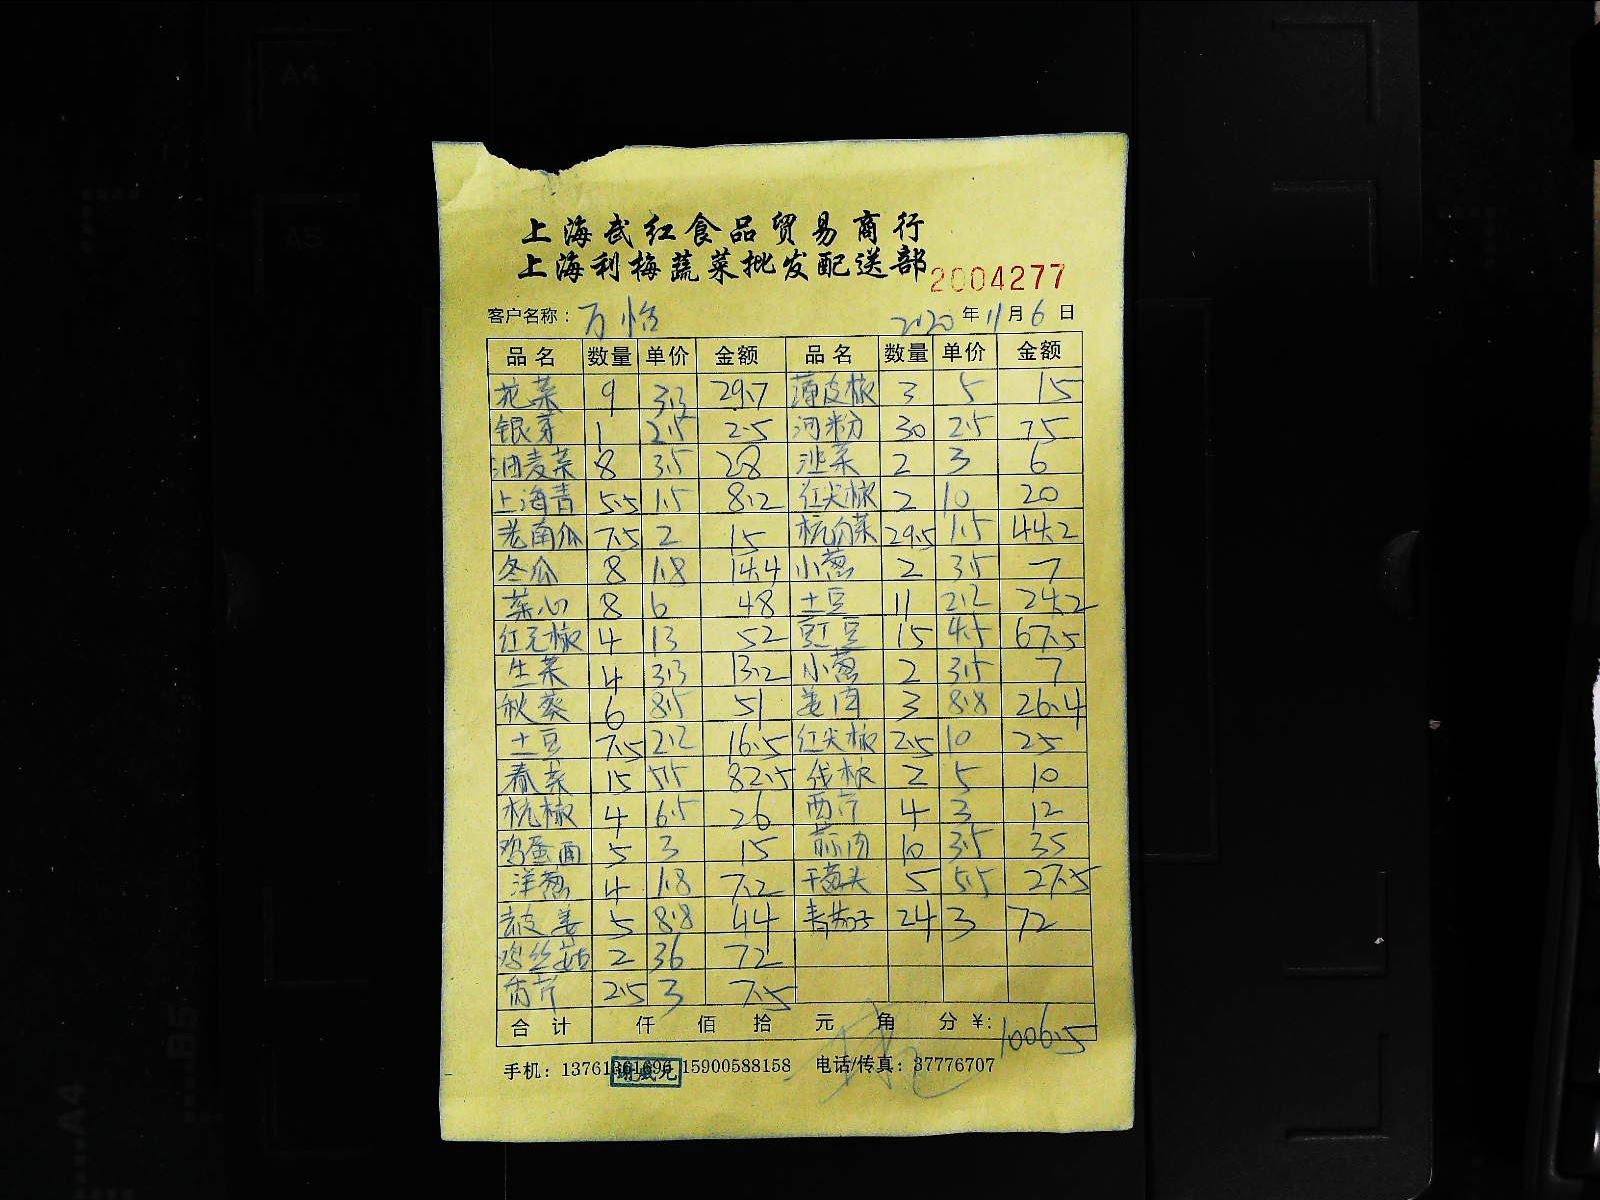 上海武红食品贸易商行
上海利梅蔬菜批发配送部 2004277
客户名称： 万怡 2020 年 11 月 6 日
品名 数量 单价 金额 品名 数量 单价 金额
花菜 9 3.3 29.7 薄皮椒 3 5 15
银芽 1 2.5 2.5 河粉 30 2.5 75
油麦菜 8 3.5 28 泄菜 2 3 6
上海青 5.5 1.5 8.2 红尖椒 2 10 20
老南瓜 7.5 2 15 杭白菜 29.5 1.5 44.2
冬瓜 8 1.8 14.4 小葱 2 3.5 7
菜心 8 6 48 土豆 11 2.2 24.2
红元椒 4 13 52 豇豆 15 4.5 67.5
生菜 4 3.3 13.2 小葱 2 3.5 7
秋葵 6 8.5 51 姜肉 3 8.8 26.4
土豆 7.5 2.2 16.5 红尖椒 2.5 10 25
春菜 15 5.5 82.5 线椒 2 5 10
杭椒 4 6.5 26 西芹 4 3 12
鸡蛋面 5 3 15 蒜肉 10 3.5 35
洋葱 4 1.8 7.2 干葱头 5 5.5 27.5
去皮姜 5 8.8 44 青茄子 24 3 72
鸡丝菇 2 36 72
香芹 2.5 3 7.5
合计 仟 佰 拾 元 角 分 ¥: 1006.5
手机: 13761361696 15900588158 电话/传真: 37776707